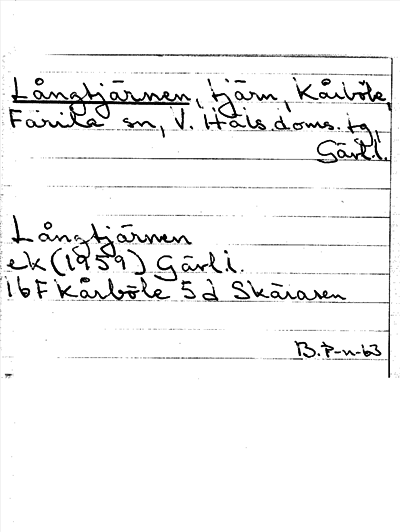 Långtjärnen, tjärn, Kårböle,
Färila sn, V. Häls. doms. tg,
Gävl.l.
Långtjärnen
ek (1959) Gävl.l.
16F Kårböle 5d Skärasen
B. P-n-63